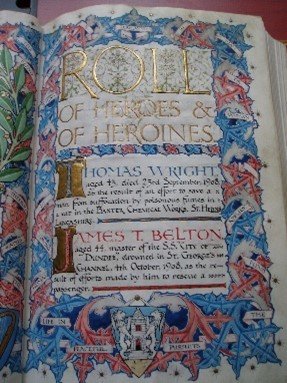 ROLL
OF HEROES &
OF HEROINES
THOMAS WRIGHT,
aged 43, died 23rd September, 1908,
as the result of an effort to save a
man from suffocation by poisonous fumes in
a vat in the Baxter Chemical Works, St. Helens
Lancashire.
JAMES T. BELTON,
aged 44, master of the S.S. City of
Dundee, drowned in St. George's
Channel, 4th October, 1908, as the re-
sult of efforts made by him to rescue a
passenger.
LIFE IN THE
PEACEFUL PURSUITS